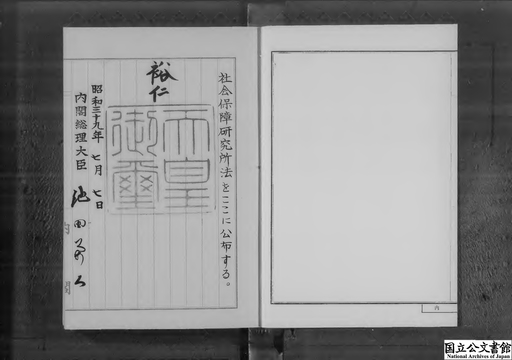 社会保障研究所法をここに公布する。
裕仁
天皇
御璽
昭和三十九年七月七日
内閣総理大臣 池田勇人
内閣
内
国立公文書館
National Archives of Japan